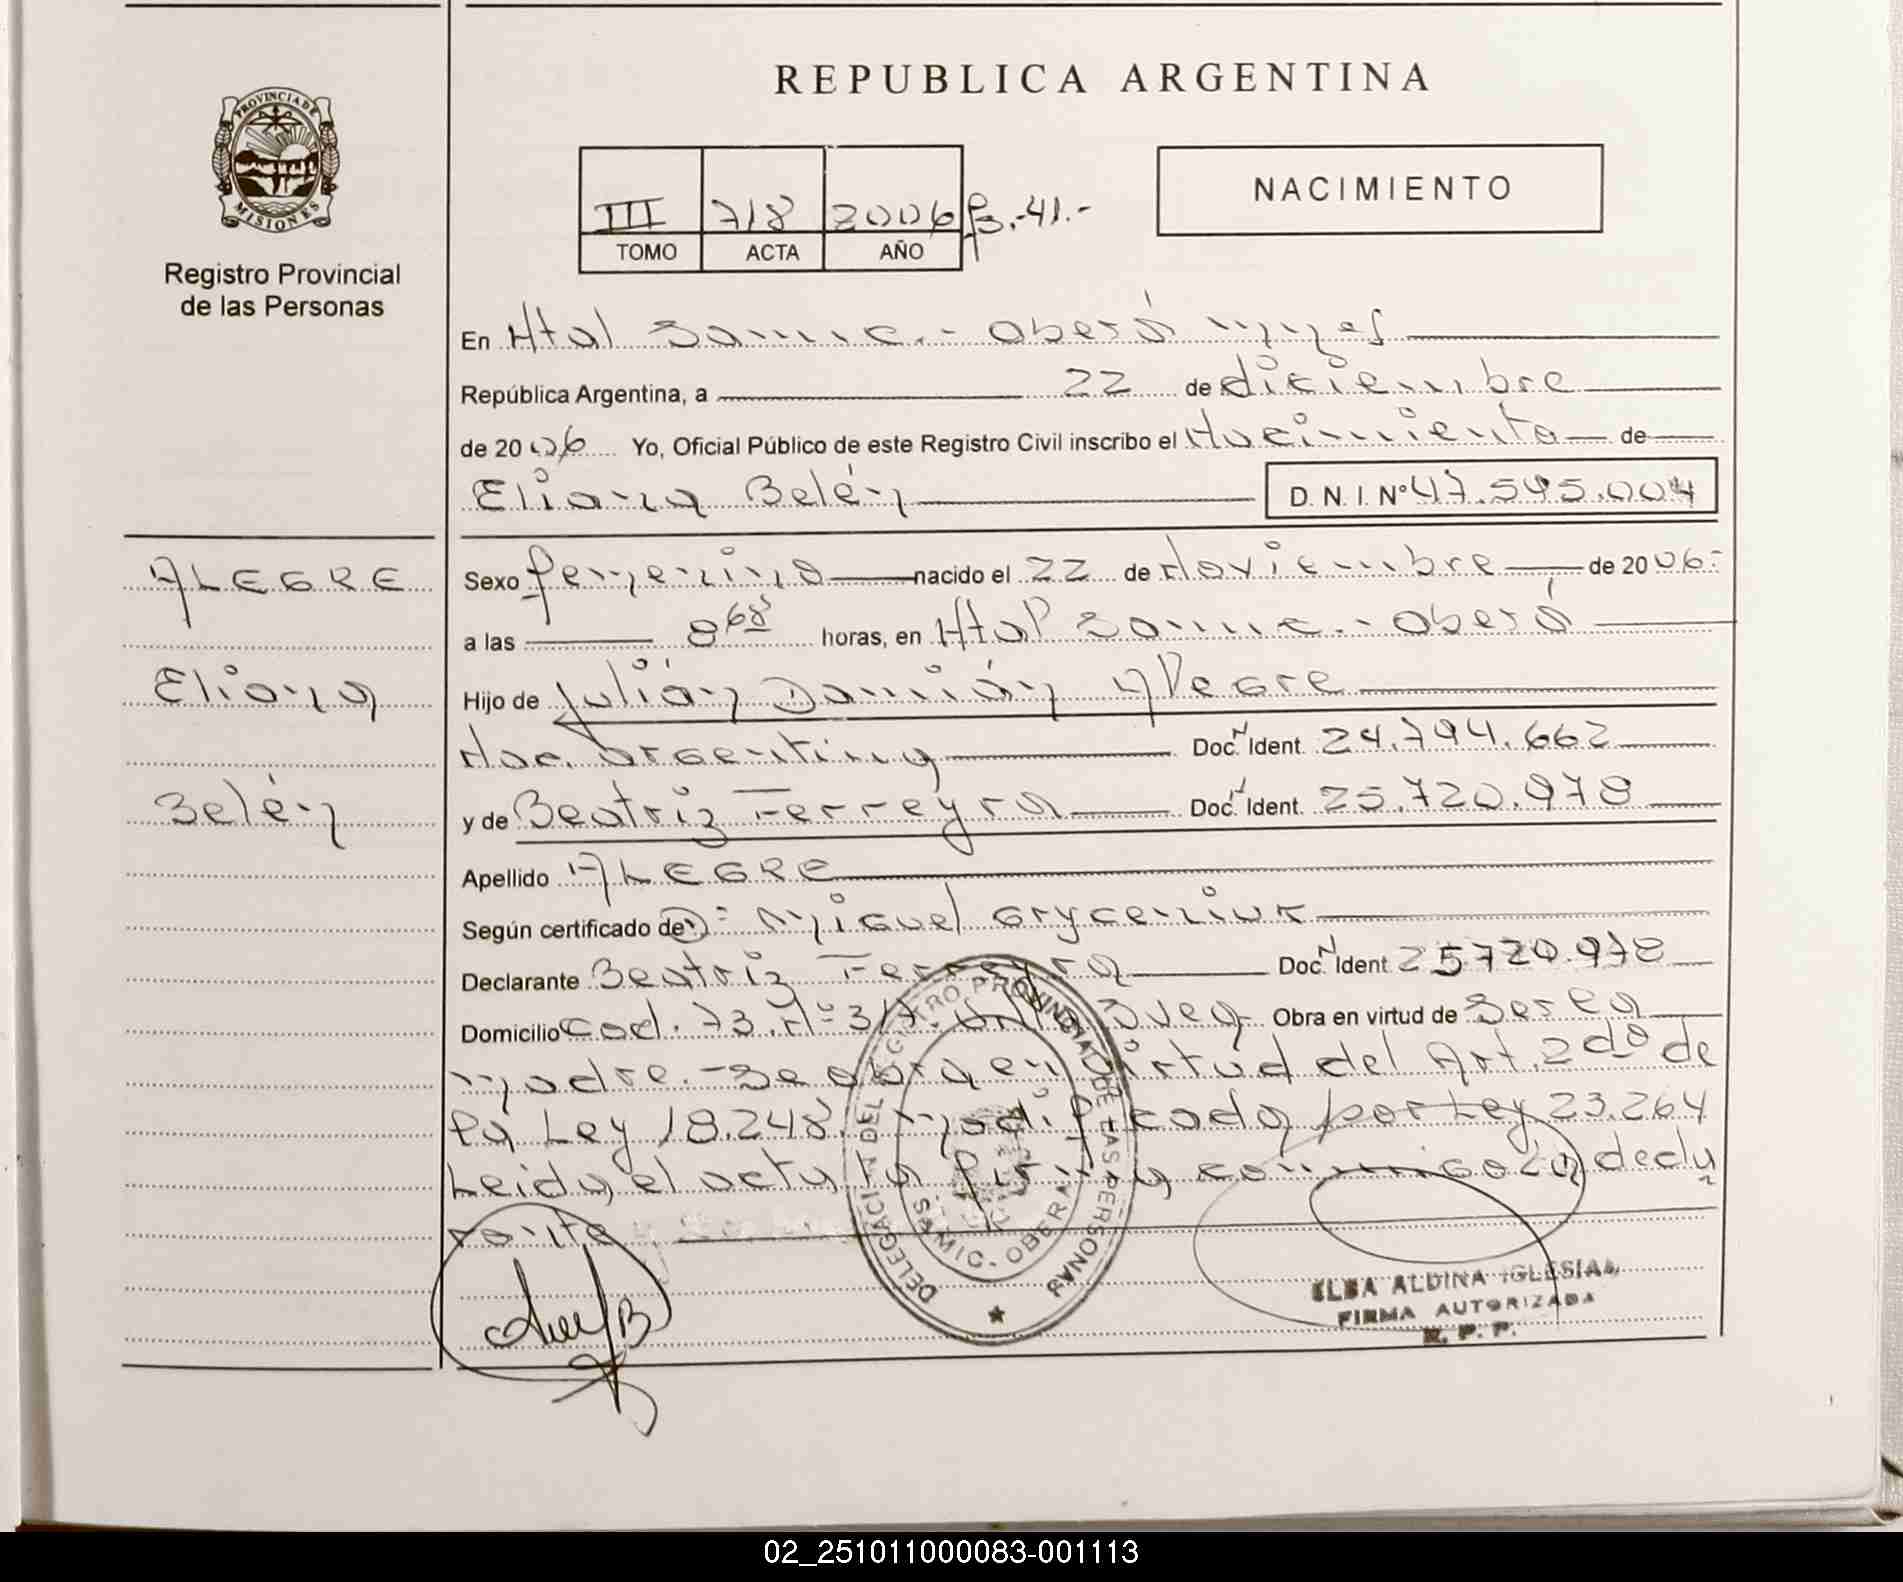 REPUBLICA ARGENTINA
PROVINCIA DE
MISIONES
Registro Provincial
de las Personas
III 718 2006 fs.-41.-
TOMO ACTA AÑO
NACIMIENTO
En Htal Samic.- Oberá Mnes
República Argentina, a 22 de diciembre
de 2006 Yo, Oficial Público de este Registro Civil inscribo el Nacimiento de
Eliana Belén D. N. I. N° 47.545.004
ALEGRE
Eliana
Belén
Sexo femenino nacido el 22 de Noviembre de 2006-
a las 8 horas, en Htal Samic.- Oberá
Hijo de Julián Damián Alegre
Nac. Argentina Doc. N Ident. 24.794.662
y de Beatriz Ferreyra Doc. N Ident. 25.720.978
Apellido ALEGRE
Según certificado de D: Miguel
Declarante Beatriz Ferreyra Doc. N Ident. 25720.978
Domicilio 73. N° 317. Obra en virtud de Ser la
madre.- Se obra en virtud del Art. 2do de
la Ley 18.248. modificada por Ley 23.264
Leida el acta la firma conmigo la decla
rante
DELEGACION DEL REGISTRO PROVINCIAL DE LAS PERSONAS
SAMIC - OBERA
ELBA ALDINA IGLESIAS
FIRMA AUTORIZADA
R. P. P.
02_251011000083-001113